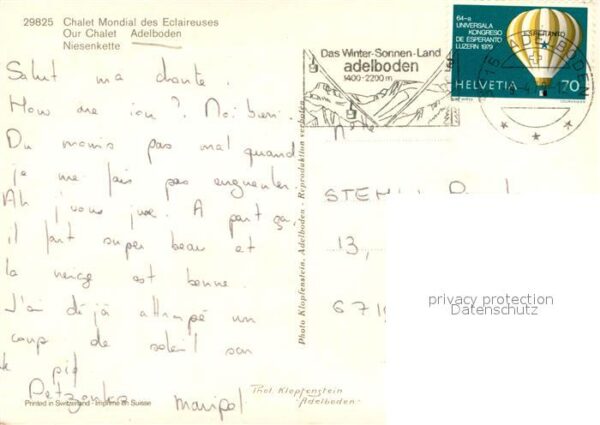 29825 Chalet Mondial des Eclaireuses
Our Chalet Adelboden
Niesenkette
Salut ma
How are you? Moi bien.
Du moins pas mal quand
je me fais pas engueuler.
Ah j'vous jure. A part ça,
il fait super beau et
la neige est bonne.
J'ai déjà attrapé un
coup de soleil sur
le pif
Printed in Switzerland - Imprimé en Suisse
Photo Klopfenstein, Adelboden - Reproduktion verboten
Das Winter-Sonnen-Land
adelboden
1400-2200 m
64-a
UNIVERSALA
KONGRESO
DE ESPERANTO
LUZERN 1979
ESPERANTO
HELVETIA 70
ADELBODEN
13,
privacy protection
Datenschutz
Phot. Klopfenstein
Adelboden